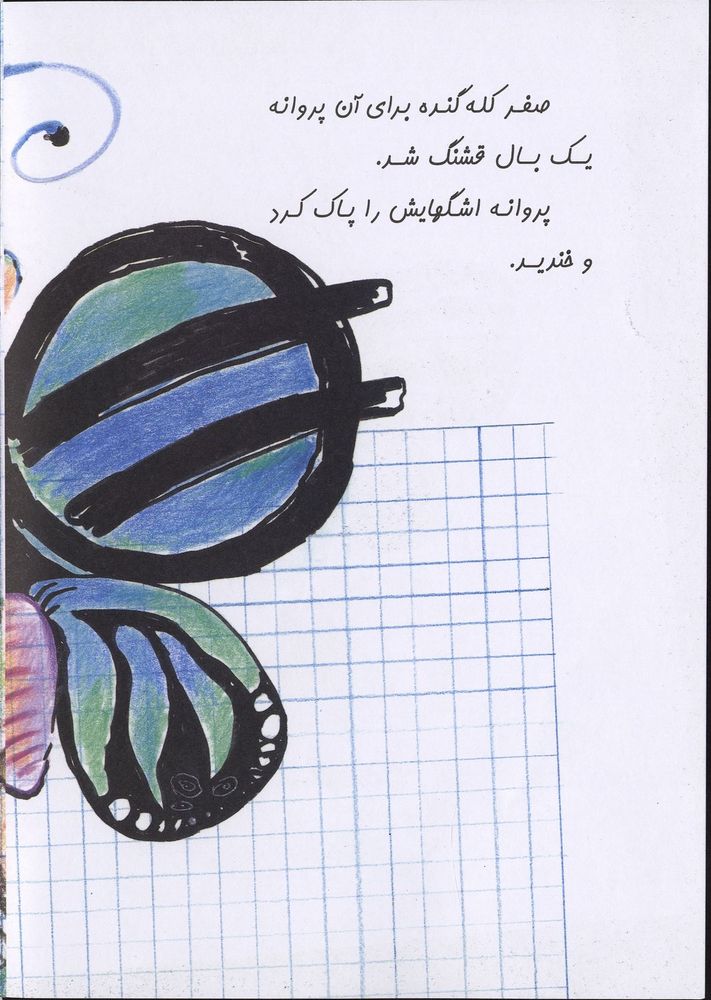 صفر کله گنده برای آن پروانه
یک بال قشنگ شد.
پروانه اشگهایش را پاک کرد
و خندید.